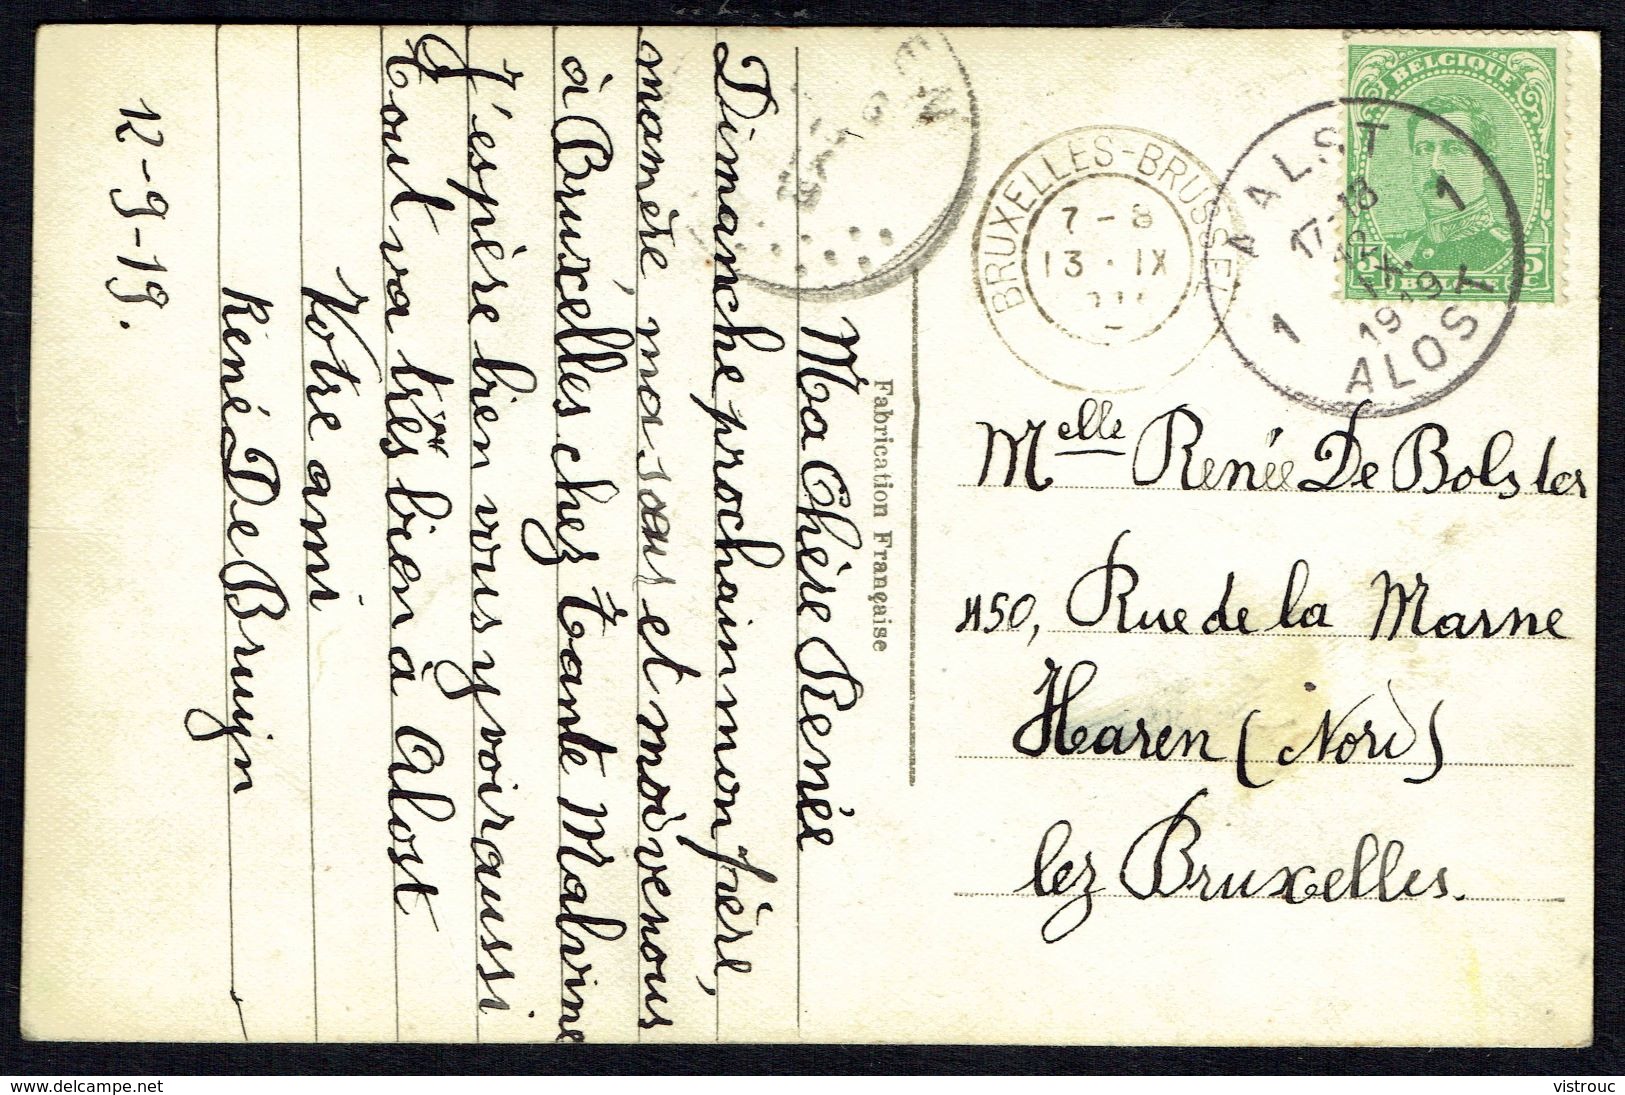 Ma Chère Renée
Dimanche prochain mon frère,
ma mère ma sœur et moi venons
à Bruxelles chez tante Malvine
J'espère bien vous y voir aussi
Tout va très bien à Alost
Votre ami
René De Bruyn
12-9-19.
Fabrication Française
BELGIQUE
5 BELGIË 5
c
AALST
1 1
17-18
12 IX
1919
ALOST
BRUXELLES-BRUSSEL
7-8
13·IX
EN
Melle Renée De Bolster
450, Rue de la Marne
Haren (Nord)
lez Bruxelles.
vistrouc